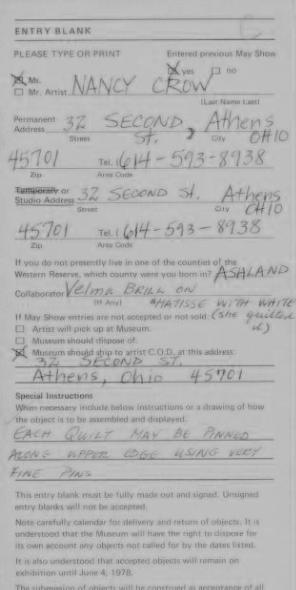 ENTRY BLANK
PLEASE TYPE OR PRINT Entered previous May Show
☒ yes ☐ no
☒ Ms.
☐ Mr. Artist NANCY CROW
(Last Name Last)
Permanent Address 32 SECOND St., Athens OHIO
Street City
45701 Tel. (614-593-8938
Zip Area Code
Temporary or Studio Address 32 SECOND St. Athens OHIO
Street City
45701 Tel. (614-593-8938
Zip Area Code
If you do not presently live in one of the counties of the
Western Reserve, which county were you born in? ASHLAND
Collaborator Velma BRILL ON
(If Any) "MATISSE WITH WHITE
If May Show entries are not accepted or not sold: (she quilted it)
☐ Artist will pick up at Museum.
☐ Museum should dispose of.
☒ Museum should ship to artist C.O.D. at this address:
32 SECOND ST.
Athens, Ohio 45701
Special Instructions
When necessary include below instructions or a drawing of how
the object is to be assembled and displayed.
EACH QUILT MAY BE PINNED
ALONG UPPER EDGE USING VERY
FINE PINS
This entry blank must be fully made out and signed. Unsigned
entry blanks will not be accepted.
Note carefully calendar for delivery and return of objects. It is
understood that the Museum will have the right to dispose for
its own account any objects not called for by the dates listed.
It is also understood that accepted objects will remain on
exhibition until June 4, 1978.
The submission of objects will be construed as acceptance of all